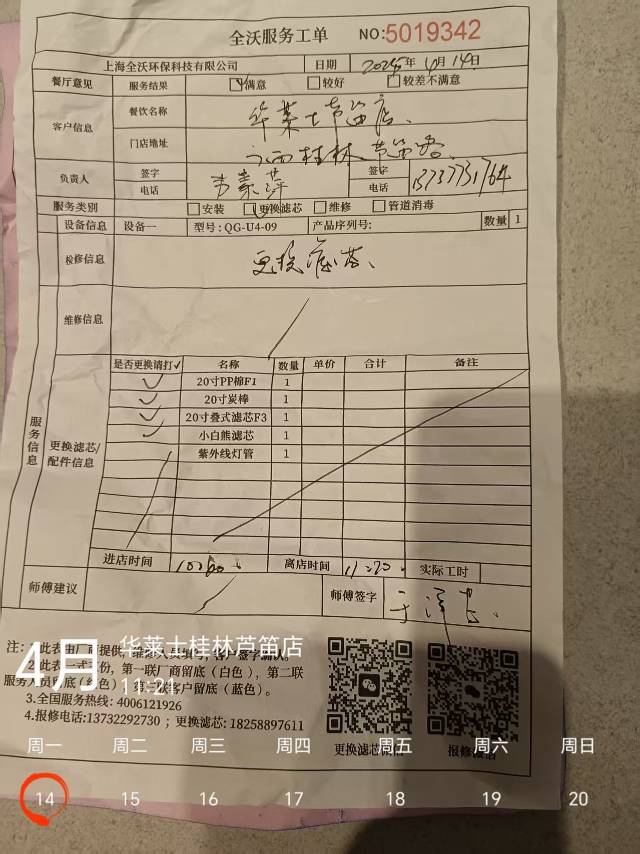 全沃服务工单 NO:5019342
上海全沃环保科技有限公司 日期 2025年4月14日
餐厅意见 服务结果 满意 较好 较差不满意
客户信息 餐饮名称 华莱士芦笛店
门店地址 广西桂林芦笛路
负责人 签字 签字
电话 电话 13737731764
服务类别 安装 更换滤芯 维修 管道消毒
设备信息 设备一 型号:QG-U4-09 产品序列号: 数量 1
检修信息 更换滤芯、
维修信息
是否更换请打✓ 名称 数量 单价 合计 备注
✓ 20寸PP棉F1 1
✓ 20寸炭棒 1
✓ 20寸叠式滤芯F3 1
✓ 小白熊滤芯 1
紫外线灯管 1
服务信息 更换滤芯/配件信息
进店时间 离店时间 实际工时
师傅建议 师傅签字
注:1.此表由厂商提供,
2.此表一式三份,第一联厂商留底(白色),第二联
服务人员留底(红色),第三联客户留底(蓝色)。
3.全国服务热线:4006121926
4.报修电话:13732292730;更换滤芯:18258897611
更换滤芯微信 报修微信
4月 华莱士桂林芦笛店
11:21
周一 周二 周三 周四 周五 周六 周日
14 15 16 17 18 19 20